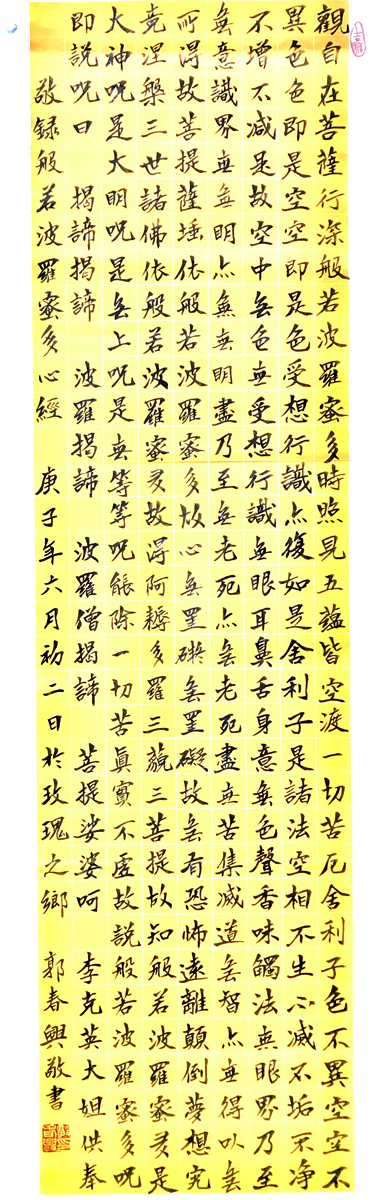 觀自在菩薩行深般若波羅蜜多時照見五蘊皆空渡一切苦厄舍利子色不異空空不
異色色即是空空即是色受想行識亦復如是舍利子是諸法空相不生不滅不垢不净
不增不減是故空中無色無受想行識無眼耳鼻舌身意無色聲香味觸法無眼界乃至
無意識界無無明亦無無明盡乃至無老死亦無老死盡無苦集滅道無智亦無得以無
所得故菩提薩埵依般若波羅蜜多故心無罣礙無罣礙故無有恐怖遠離顛倒夢想究
竟涅槃三世諸佛依般若波羅蜜多故得阿耨多羅三藐三菩提故知般若波羅蜜多是
大神呪是大明呪是無上呪是無等等呪能除一切苦真實不虛故說般若波羅蜜多呪
即說呪曰 揭諦揭諦 波羅揭諦 波羅僧揭諦 菩提娑婆呵 李克英大姐供奉
敬録般若波羅蜜多心經 庚子年六月初二日於玫瑰之鄉 郭春興敬書